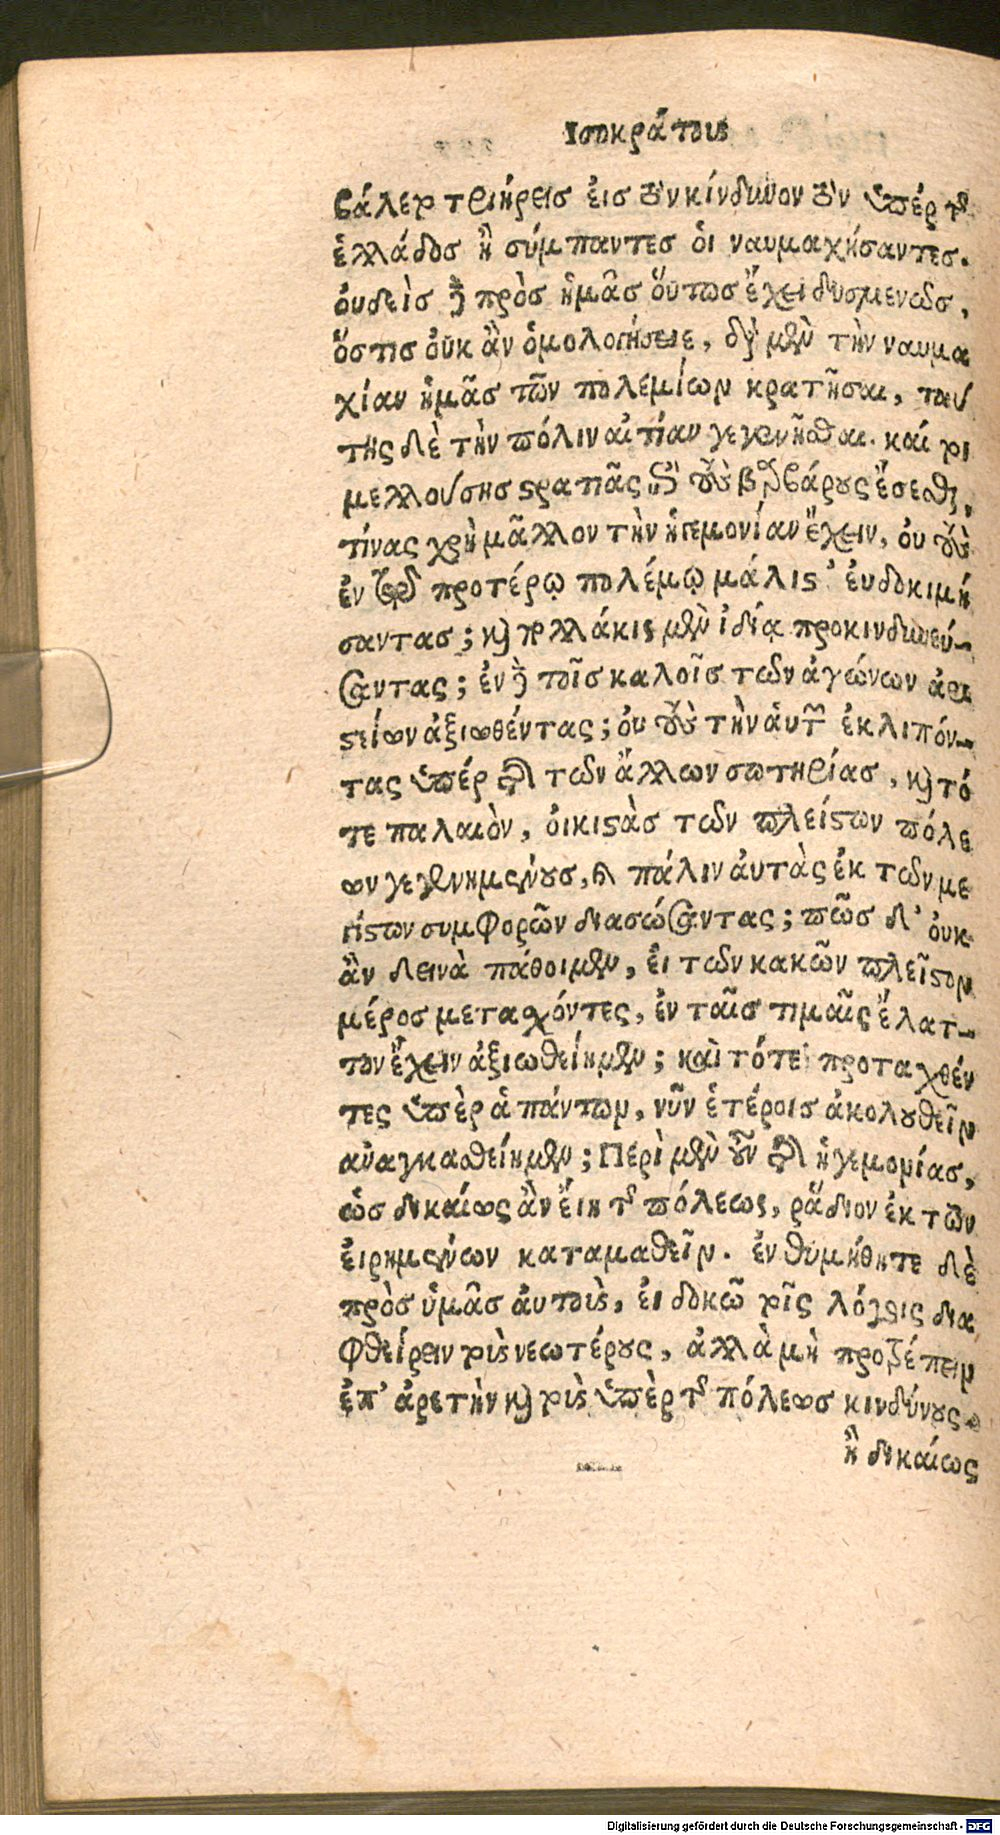 Ισοκράτους
βάλεν τριήρεις εἰς τὸν κίνδυνον τὸν ὑπέρ τῆς
ἑλλάδος ἢ σύμπαντες ὁι ναυμαχήσαντες.
ὀυδεὶς δὲ πρὸς ἡμᾶς ὅυτως ἔχει δυσμενῶς,
ὅστις οὐκ ἂν ὁμολογήσειε, διὰ μὲν τὴν ναυμα
χίαν ἡμᾶς τῶν πολεμίων κρατῆσαι, ταύ
της δὲ τὴν πόλιν αἰτίαν γεγενῆσθαι. καί τοι
μελλούσης στρατιᾶς ἐπὶ τοὺς βαρβάρους ἔσεσθαι,
τίνας χρὴ μᾶλλον τὴν ἡγεμονίαν ἔχειν, ὀυ τοὺς
ἐν τῷ προτέρῳ πολέμῳ μάλιστ’ ἐυδοκιμή
σαντας; καὶ πολλάκις μὲν ἰδίᾳ προκινδυνεύ-
σαντας; ἐν δὲ τοῖς καλοῖς τῶν ἀγώνων ἀρι
στείων ἀξιωθέντας; ὀυ τοὺς τὴν ἁυτῶν ἐκλιπόν-
τας ὑπέρ τῆς τῶν ἄλλων σωτηρίας, καὶ τό
τε παλαιὸν, ὀικιστὰς τῶν πλείστων πόλε
ων γεγενημένους, καὶ πάλιν ἀυτὰς ἐκ τῶν με
γίστων συμφορῶν διασώσαντας; πῶς δ’ ὀυκ
ἂν δεινὰ πάθοιμεν, ἐι τῶν κακῶν πλεῖστον
μέρος μετασχόντες, ἐν ταῖς τιμαῖς ἔλατ-
τον ἔχειν ἀξιωθείημεν; καὶ τότε προταχθέν
τες ὑπὲρ ἁπάντων, νῦν ἑτέροις ἀκολουθεῖν
ἀναγκασθείημεν; Περὶ μὲν οὖν τῆς ἡγεμονίας,
ὡς δικαίως ἂν ἔιη τῆς πόλεως, ῥάδιον ἐκ τῶν
ἐιρημένων καταμαθεῖν. ἐνθυμήθητε δὲ
πρὸς ὑμᾶς ἀυτοὺς, ἐι δοκῶ τοῖς λόγοις δια
φθείρειν τοὺς νεωτέρους, ἀλλὰ μὴ προτρέπειν
ἐπ’ ἀρετὴν καὶ τοὺς ὑπὲρ τῆς πόλεως κινδύνους.
ἢ δικαίως
Digitalisierung gefördert durch die Deutsche Forschungsgemeinschaft - DFG